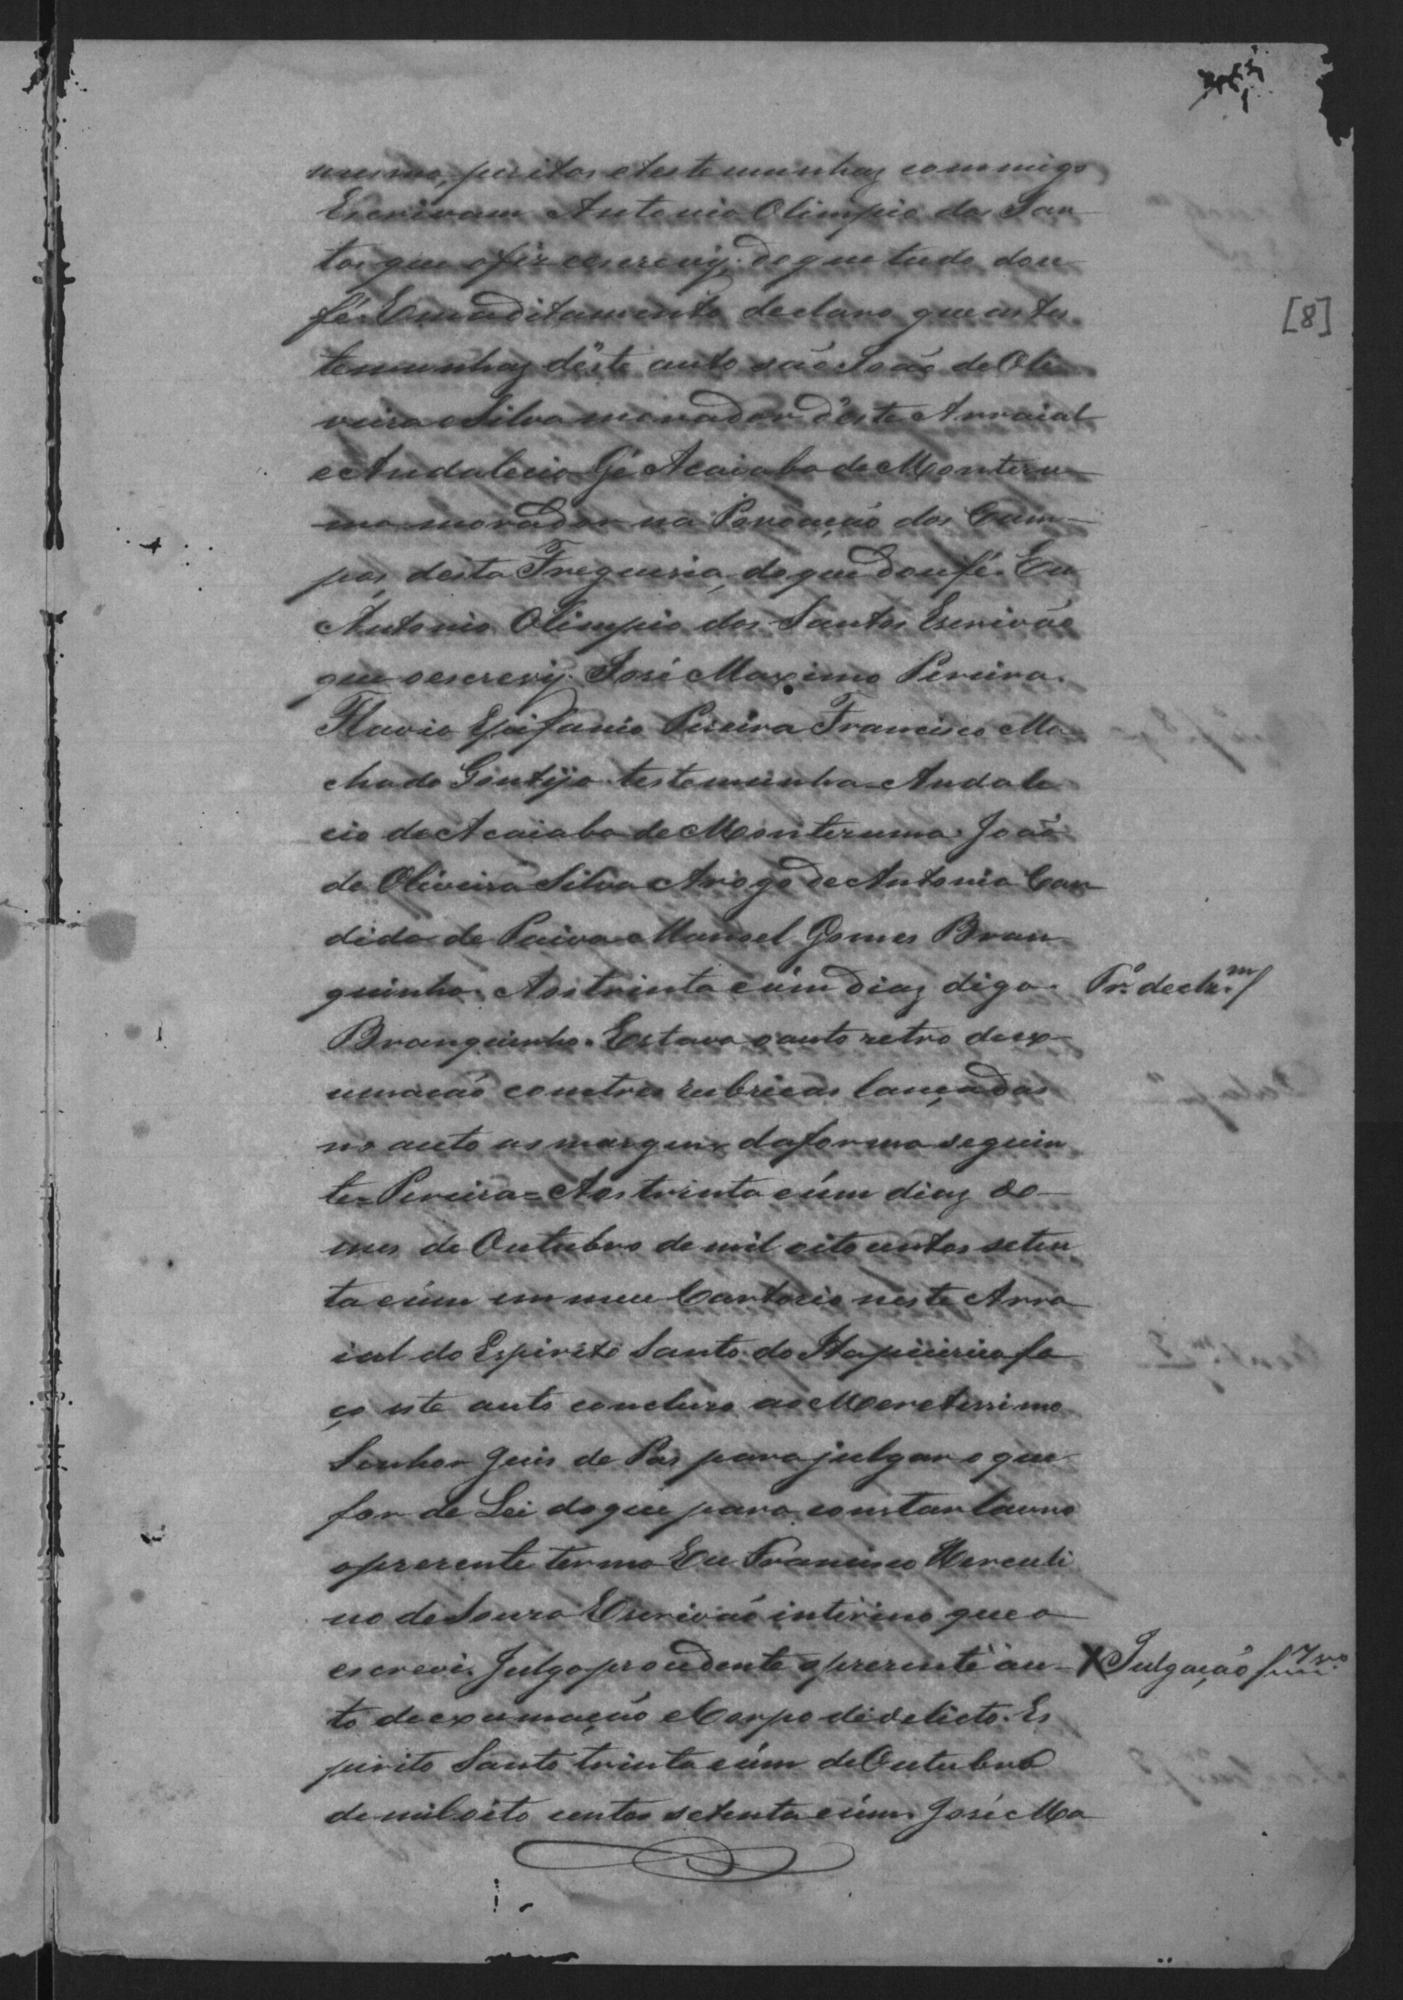 mesmo, peritos etestemunhas commigo
Escrivam Antonio Olimpio dos San
tos que ofiz eescrevy. de que tudo dou
fé. Em aditamento declaro que as tes
temunhas déste auto são João de Oli
veira Silva morador d'este Arraial
e Andalecio Gé Acaiaba de Montezu
ma morador na Povoação dos Cam
pos, desta Freguesia, do que dou fé. Eu
Antonio Olimpio dos Santos Escrivão
que oescrevy. José Maximo Pereira.
Flavio Epifanio Pereira Francisco Ma
chado Gontijo testemunha Andale
cio de Acaiaba de Montezuma. João
de Oliveira Silva Arogo de Antonio Can
dido de Paiva Manoel Gomes Bran
quinho. Aos trinta eúm diaz digo.
Pr. declm.
Branquinho. Estava oauto retro de ex
umacaõ com tres rubricas lançadas
no auto as margens da forma seguin
te= Pereira= Aos trinta eúm diaz do
mes de Outubro de mil oito centos seten
ta eúm em meu Cartorio neste Arra
ial do Espirito Santo do Itapicirica fa
ço este auto concluzo ao Meretissimo
Senhor Juis de Pas para julgar o que
for de Lei do que para constar lavro
oprezente termo Eu Francisco Herculi
no de Souza Escrivaõ interino que o
escrevi. Julgo procedente oprezente au
X Julgação
to de exumação eCorpo de delicto. Es
pirito Santo trinta eúm de Outubro
de mil oito centos setenta eúm. José Ma
[8]